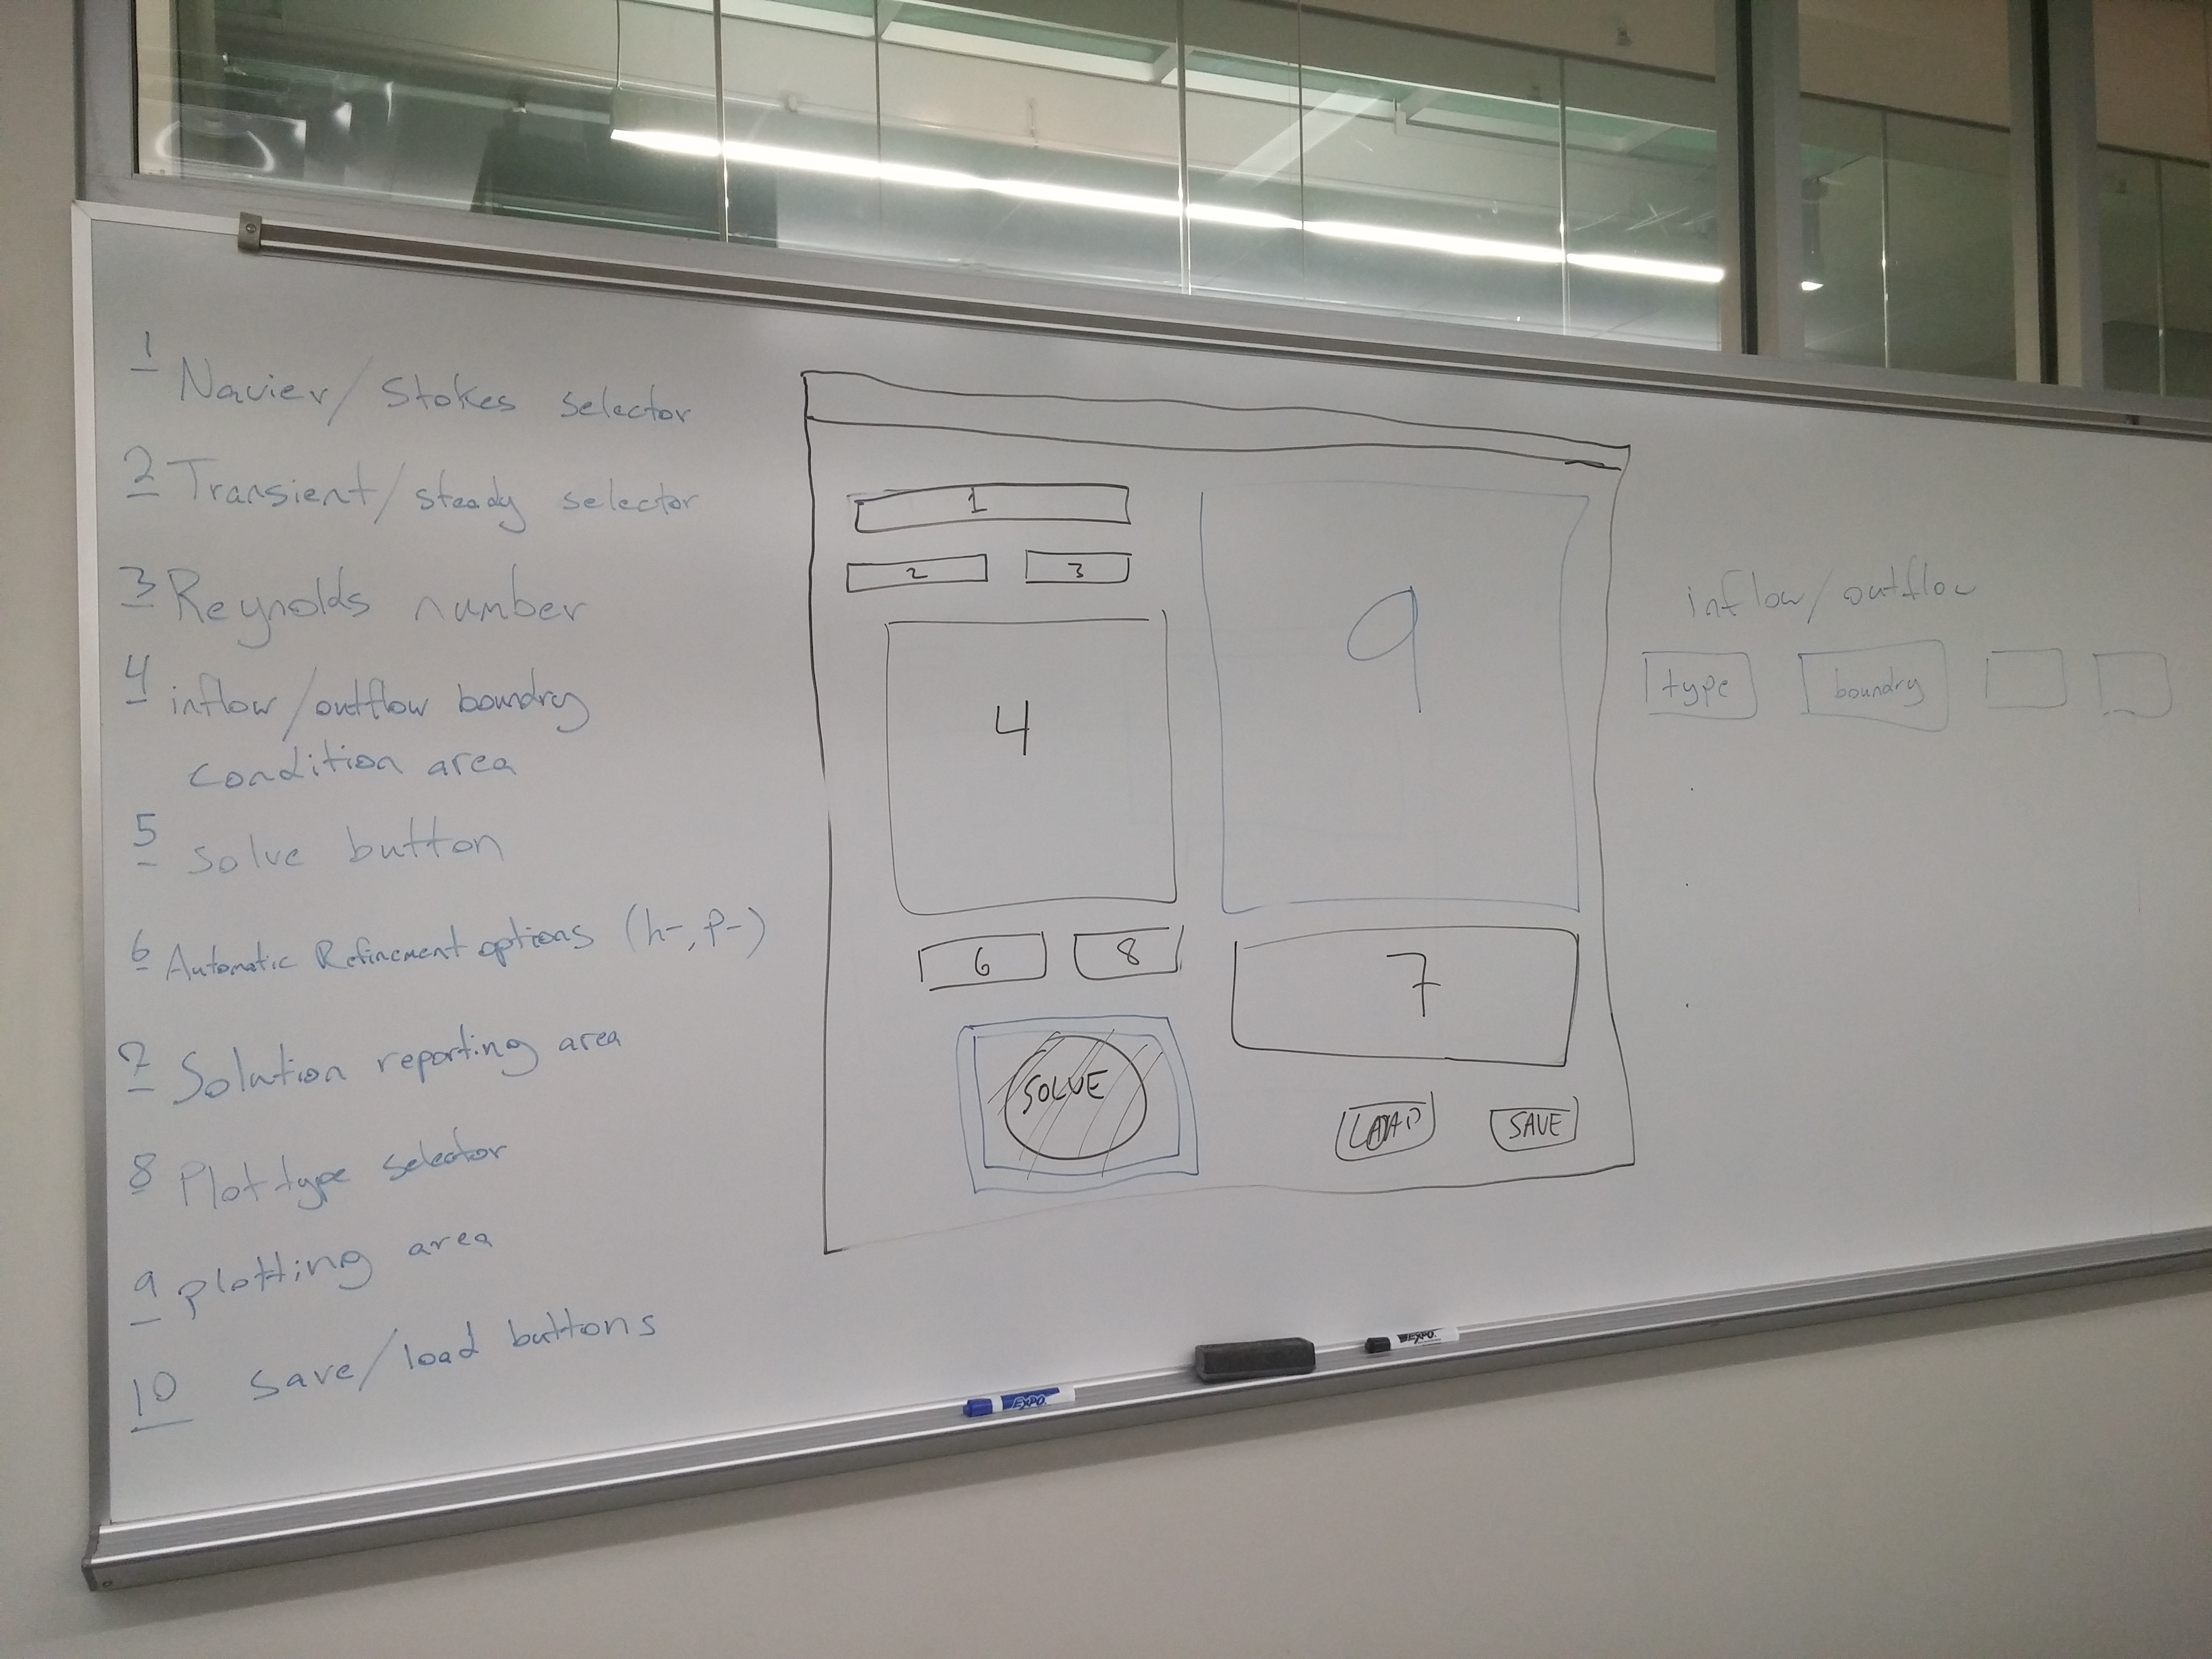 1 Navier/Stokes selector
2 Transient/steady selector
3 Reynolds number
4 inflow/outflow boundry
condition area
5 solve button
6 Automatic Refinement options (h-, p-)
7 Solution reporting area
8 Plot type selector
9 plotting area
10 save/load buttons
1
2 3
4
9
6 8
7
SOLVE
LOAD SAVE
inflow/outflow
type boundry
EXPO
EXPO